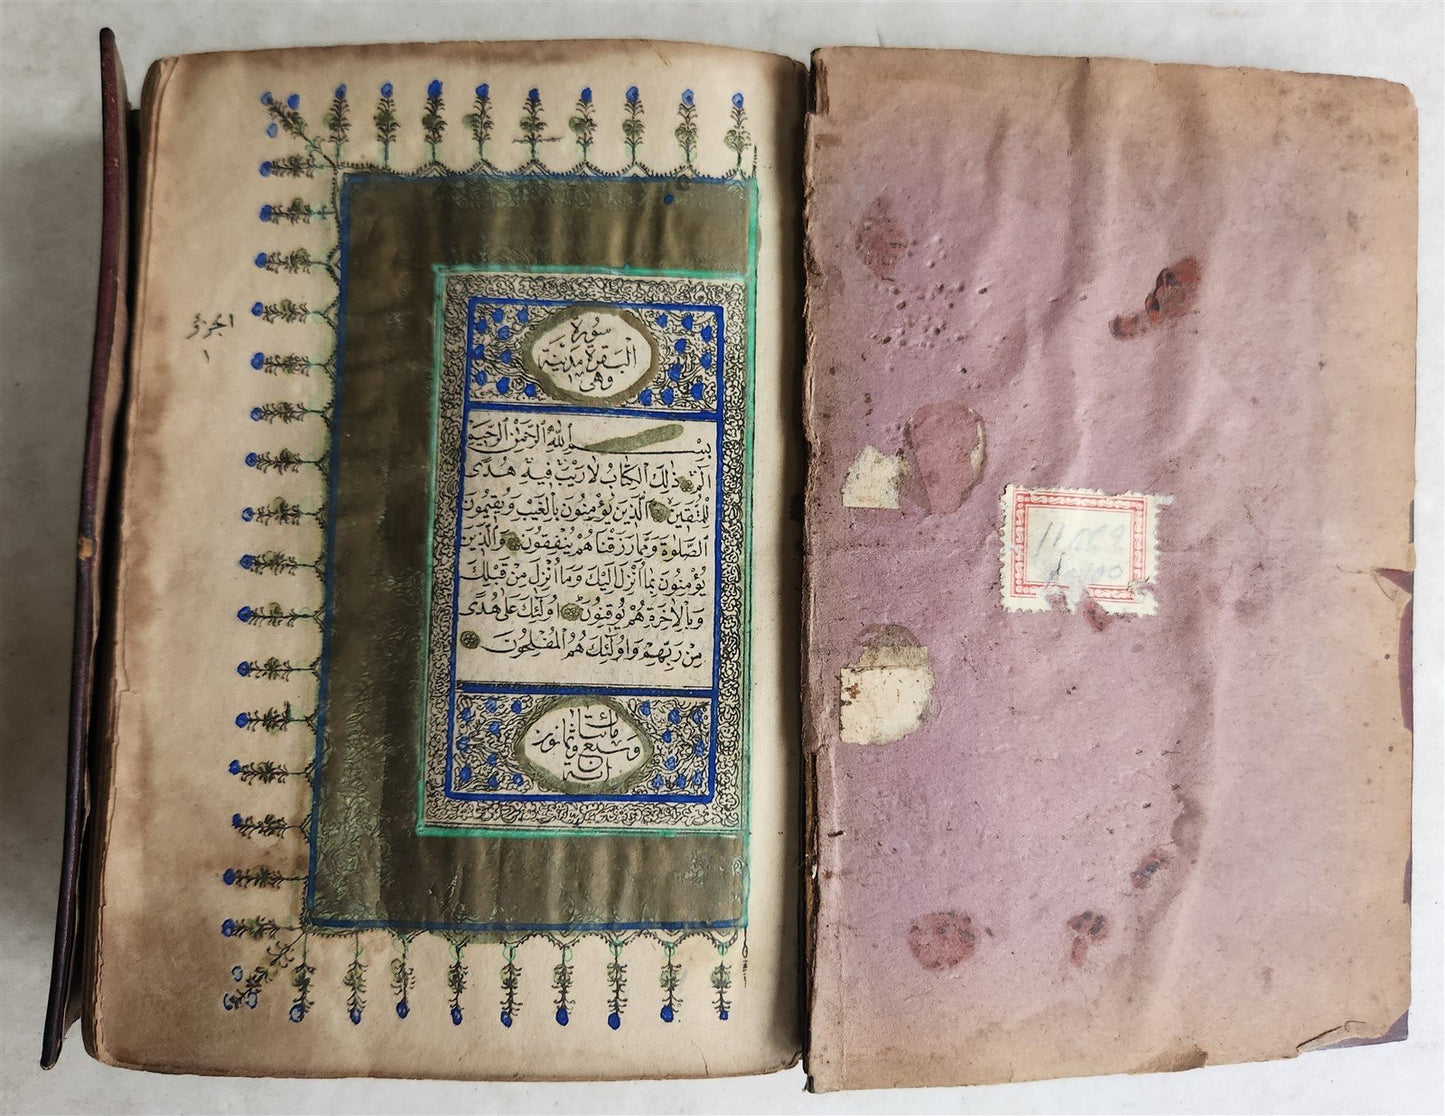 سورة
البقرة مدينة
وهى
بسم الله الرحمن الرحيم
الم ذلك الكتاب لا ريب فيه هدى
للمتقين الذين يؤمنون بالغيب ويقيمون
الصلوة ومما رزقناهم ينفقون والذين
يؤمنون بما انزل اليك وما انزل من قبلك
وبالاخرة هم يوقنون اولئك على هدى
من ربهم واولئك هم المفلحون
مائتان
وسبع وثمانون
اية
الجزء
١